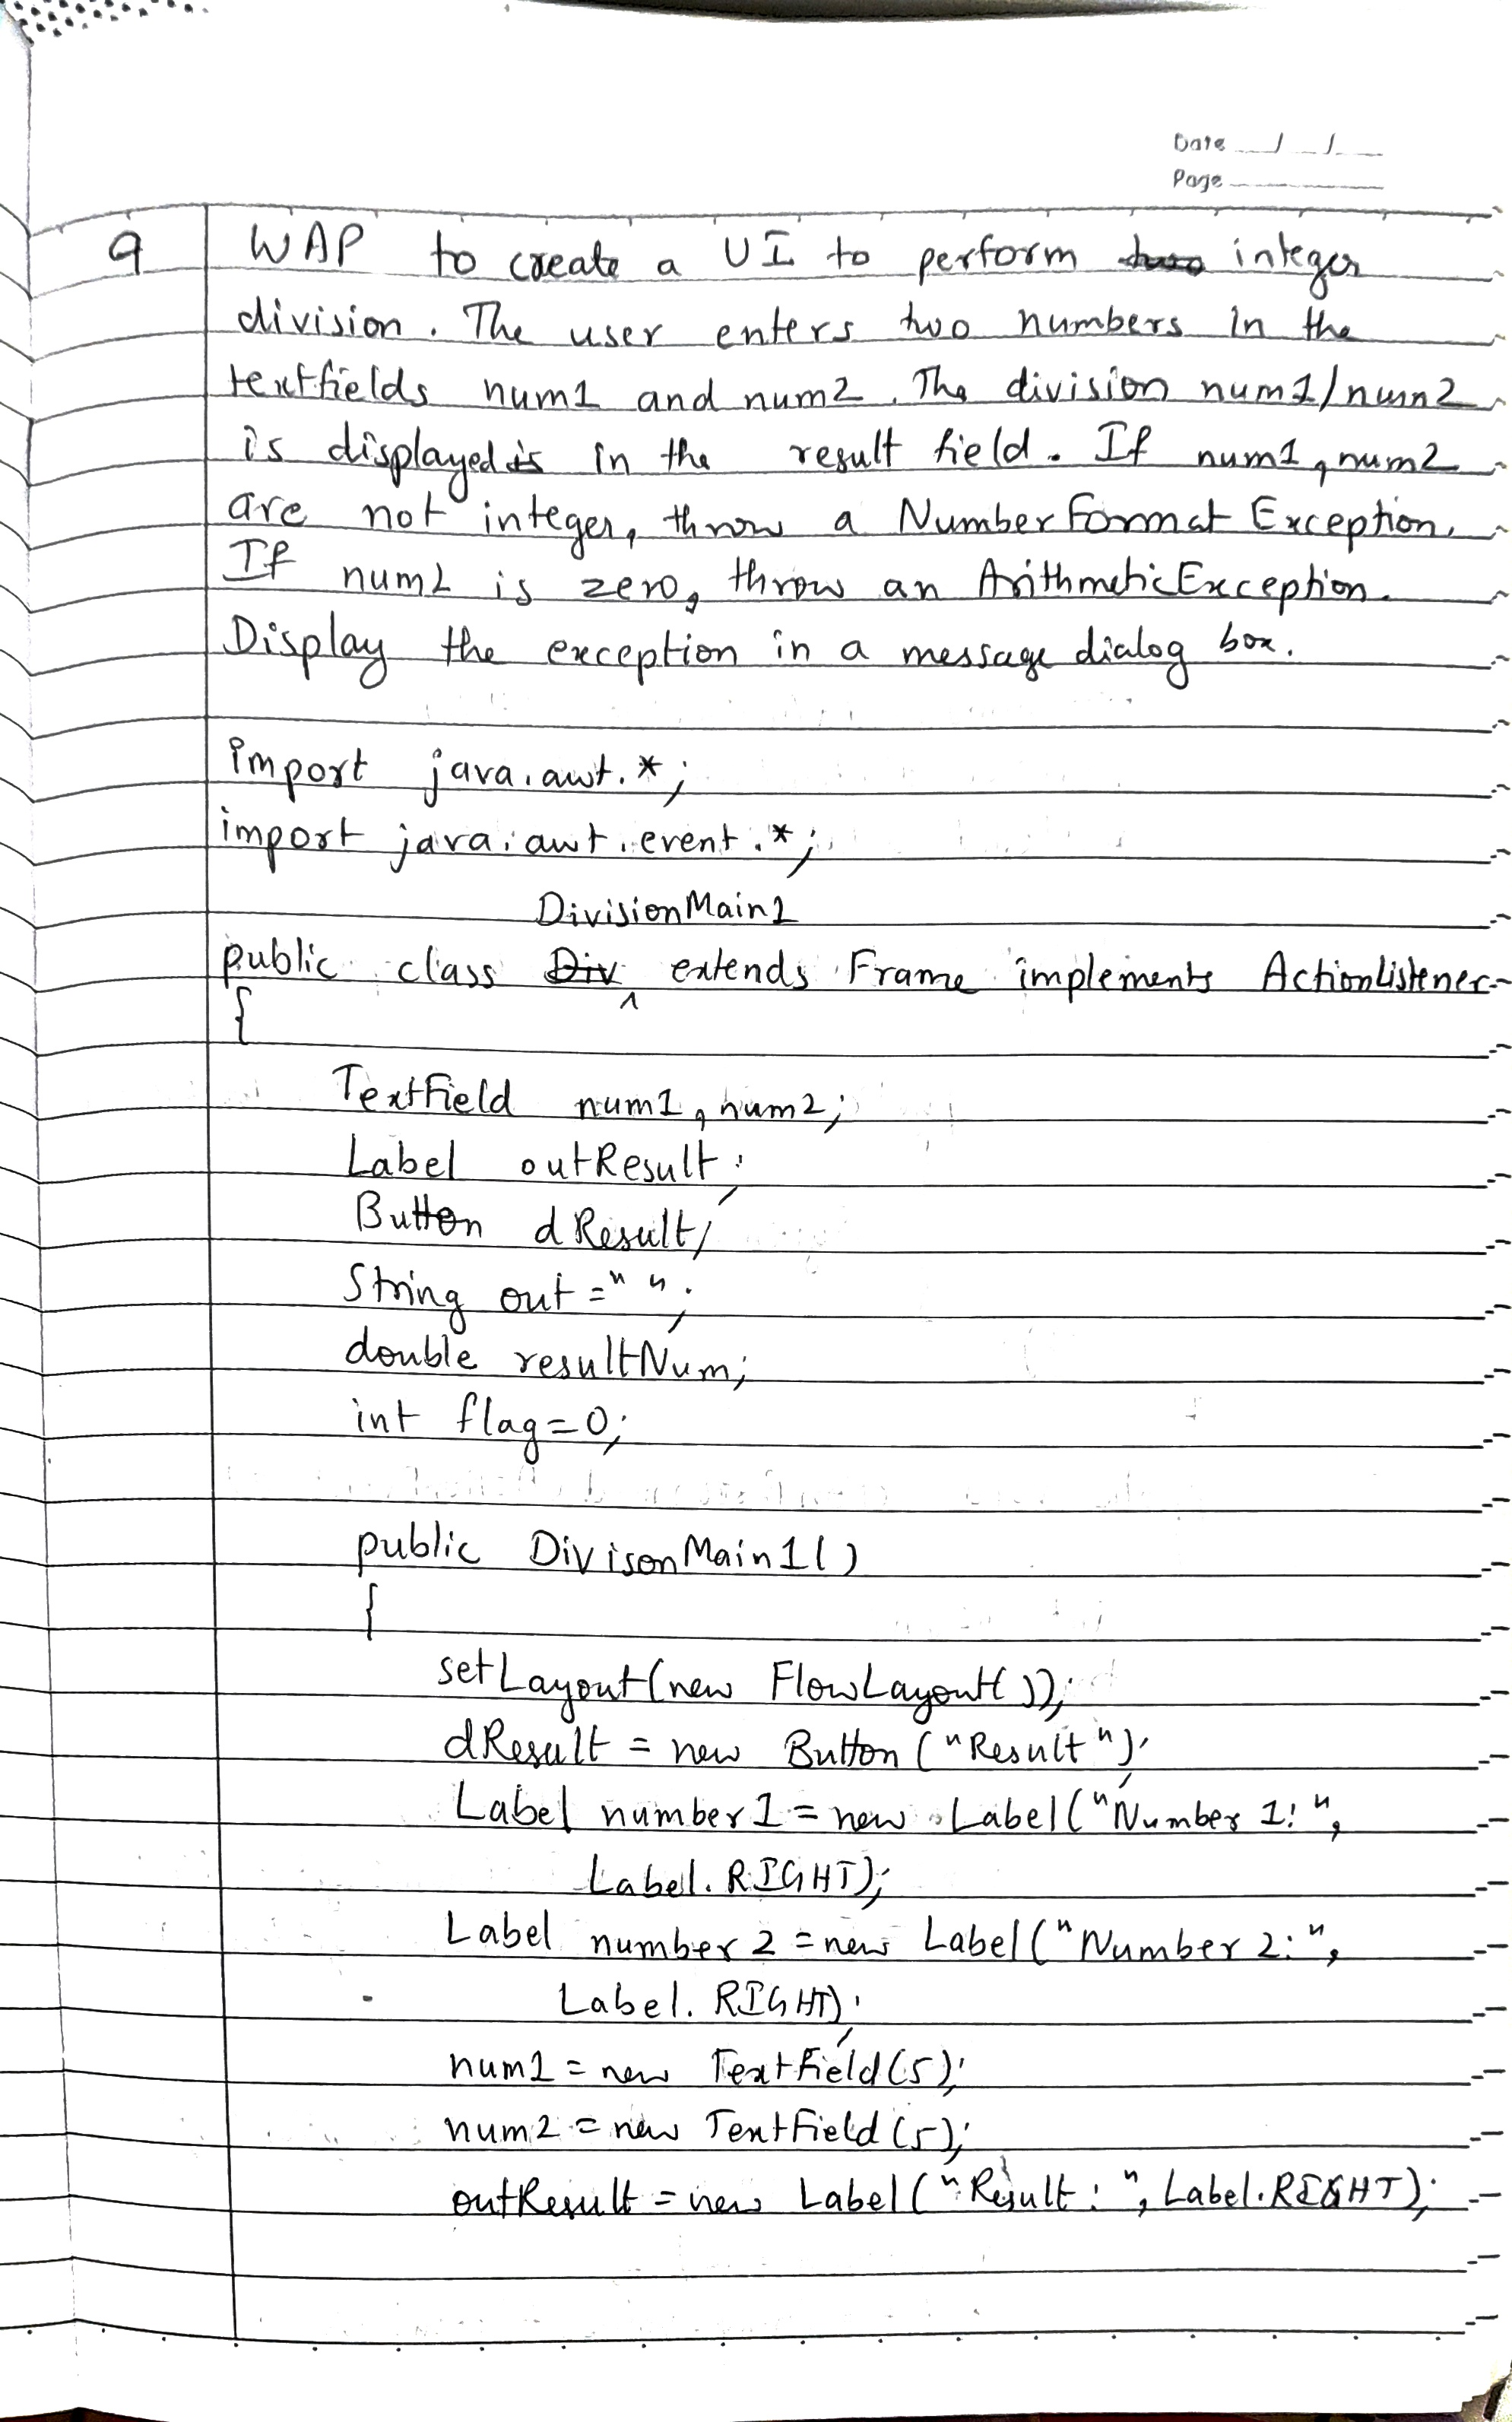 Date __/__/__
Page
9 WAP to create a UI to perform two integer
division. The user enters two numbers in the
textfields num1 and num2. The division num1/num2
is displayed is in the result field. If num1, num2
are not integer, throw a NumberFormatException.
If num2 is zero, throw an ArithmeticException.
Display the exception in a message dialog box.
import java.awt.*;
import java.awt.event.*;
DivisionMain1
public class Div extends Frame implements ActionListener
{
TextField num1, num2;
Label outResult;
Button dResult;
String out=" ";
double resultNum;
int flag=0;
public DivisonMain1()
{
setLayout(new FlowLayout());
dResult = new Button("Result");
Label number1 = new Label("Number 1:",
Label.RIGHT);
Label number2 = new Label("Number 2:",
Label.RIGHT);
num1 = new TextField(5);
num2 = new TextField(5);
outResult = new Label("Result:", Label.RIGHT);